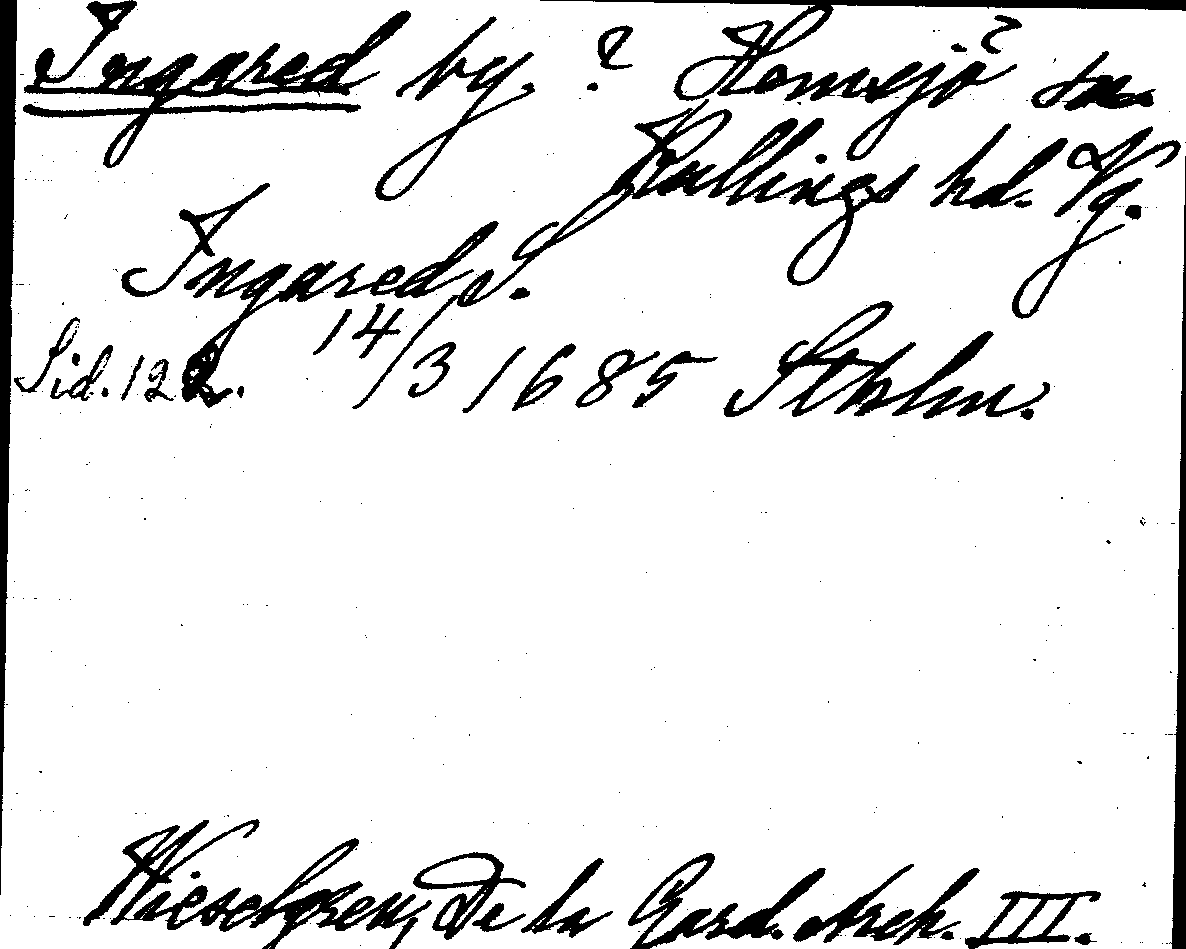 Ingared by. ? Hemsjö ? sn.
Kullings hd. Vg.
Ingared S.
Sid. 122. 14/3 1685 Sthlm.
Wieselgren, De la Gard. Ark. III.